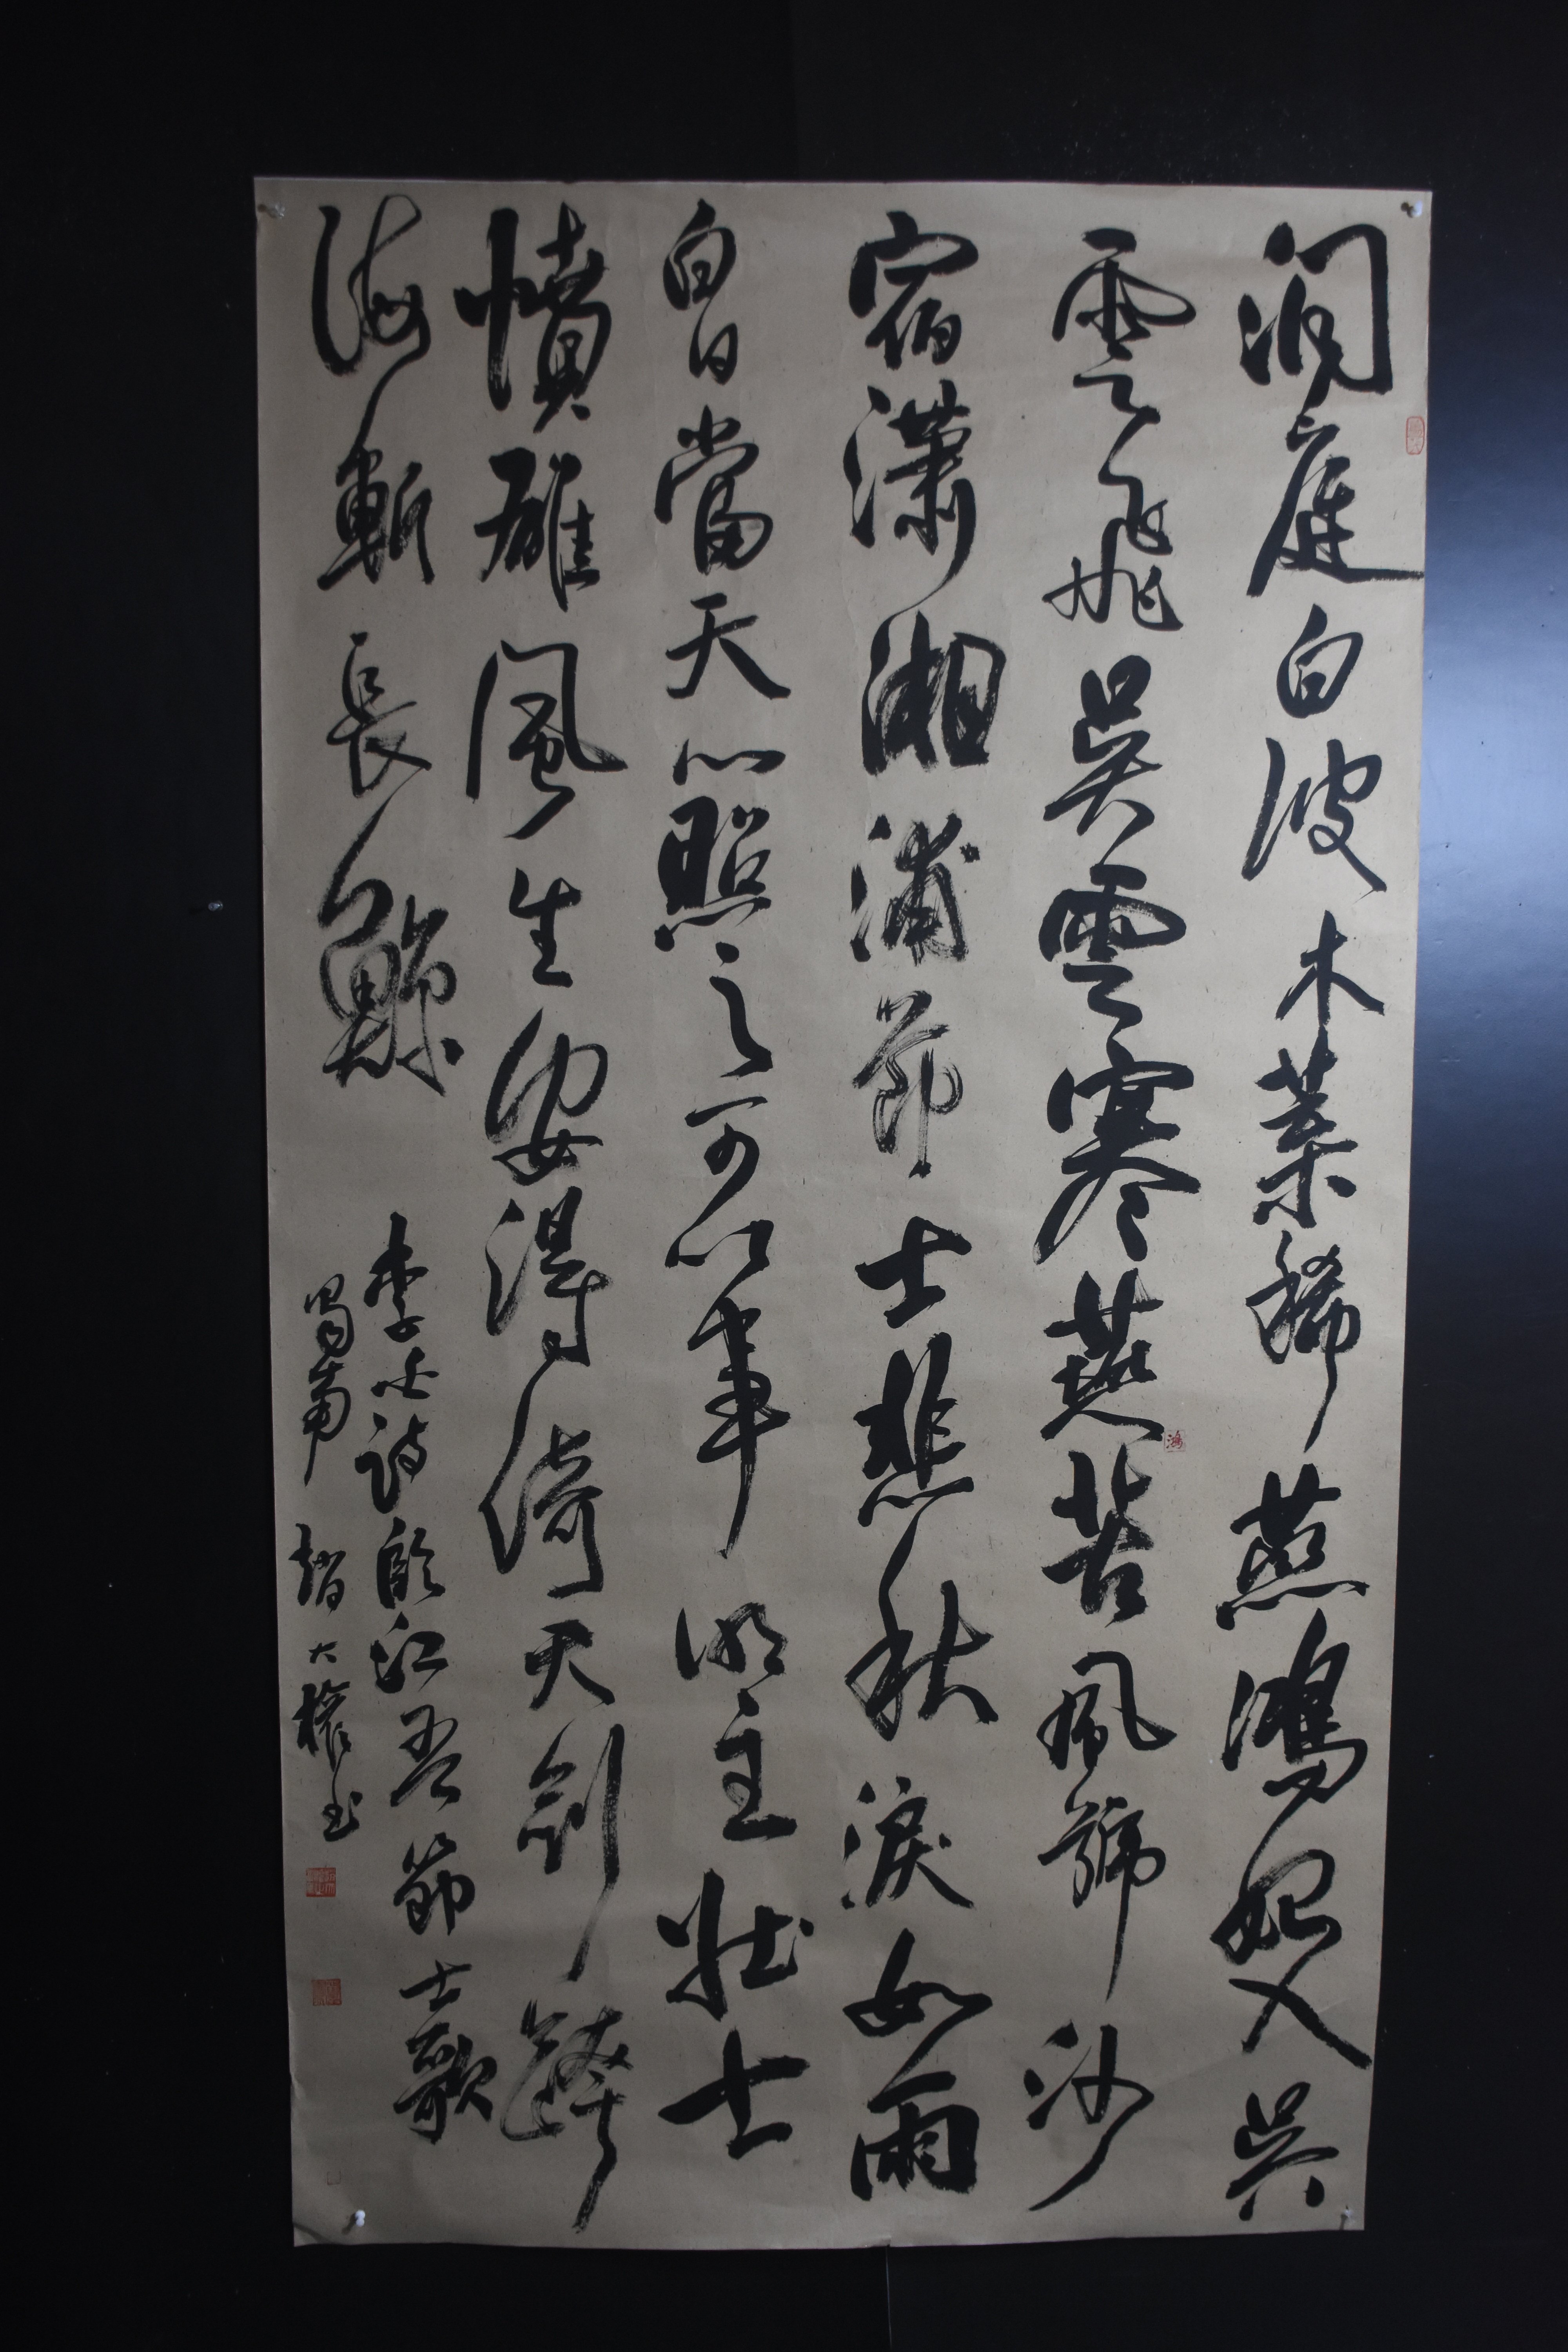 洞庭白波木葉稀燕鴻始入吳
雲飛吳雲寒燕苦風號沙
鴻
宿瀟湘浦節士悲秋淚如雨
白日當天心照之可以事明主壯士
憤雄風生安得倚天劍跨
海斬長鯨
李白詩臨江王節士歌
蜀南 趙大權書